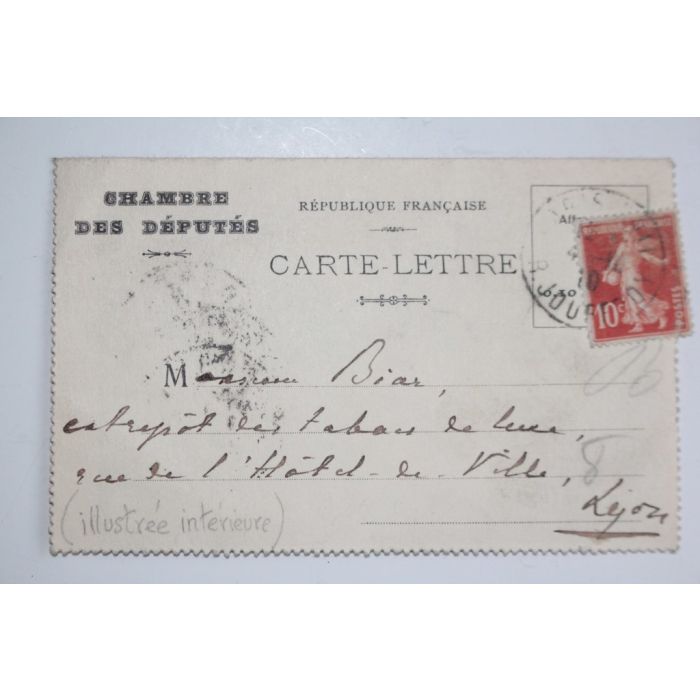 CHAMBRE
DES DÉPUTÉS
RÉPUBLIQUE FRANÇAISE
CARTE-LETTRE
10c
POSTES
Monsieur Biar,
entrepôt des tabacs de luxe,
rue de l'Hôtel-de-Ville,
8
Lyon
(illustrée intérieure)